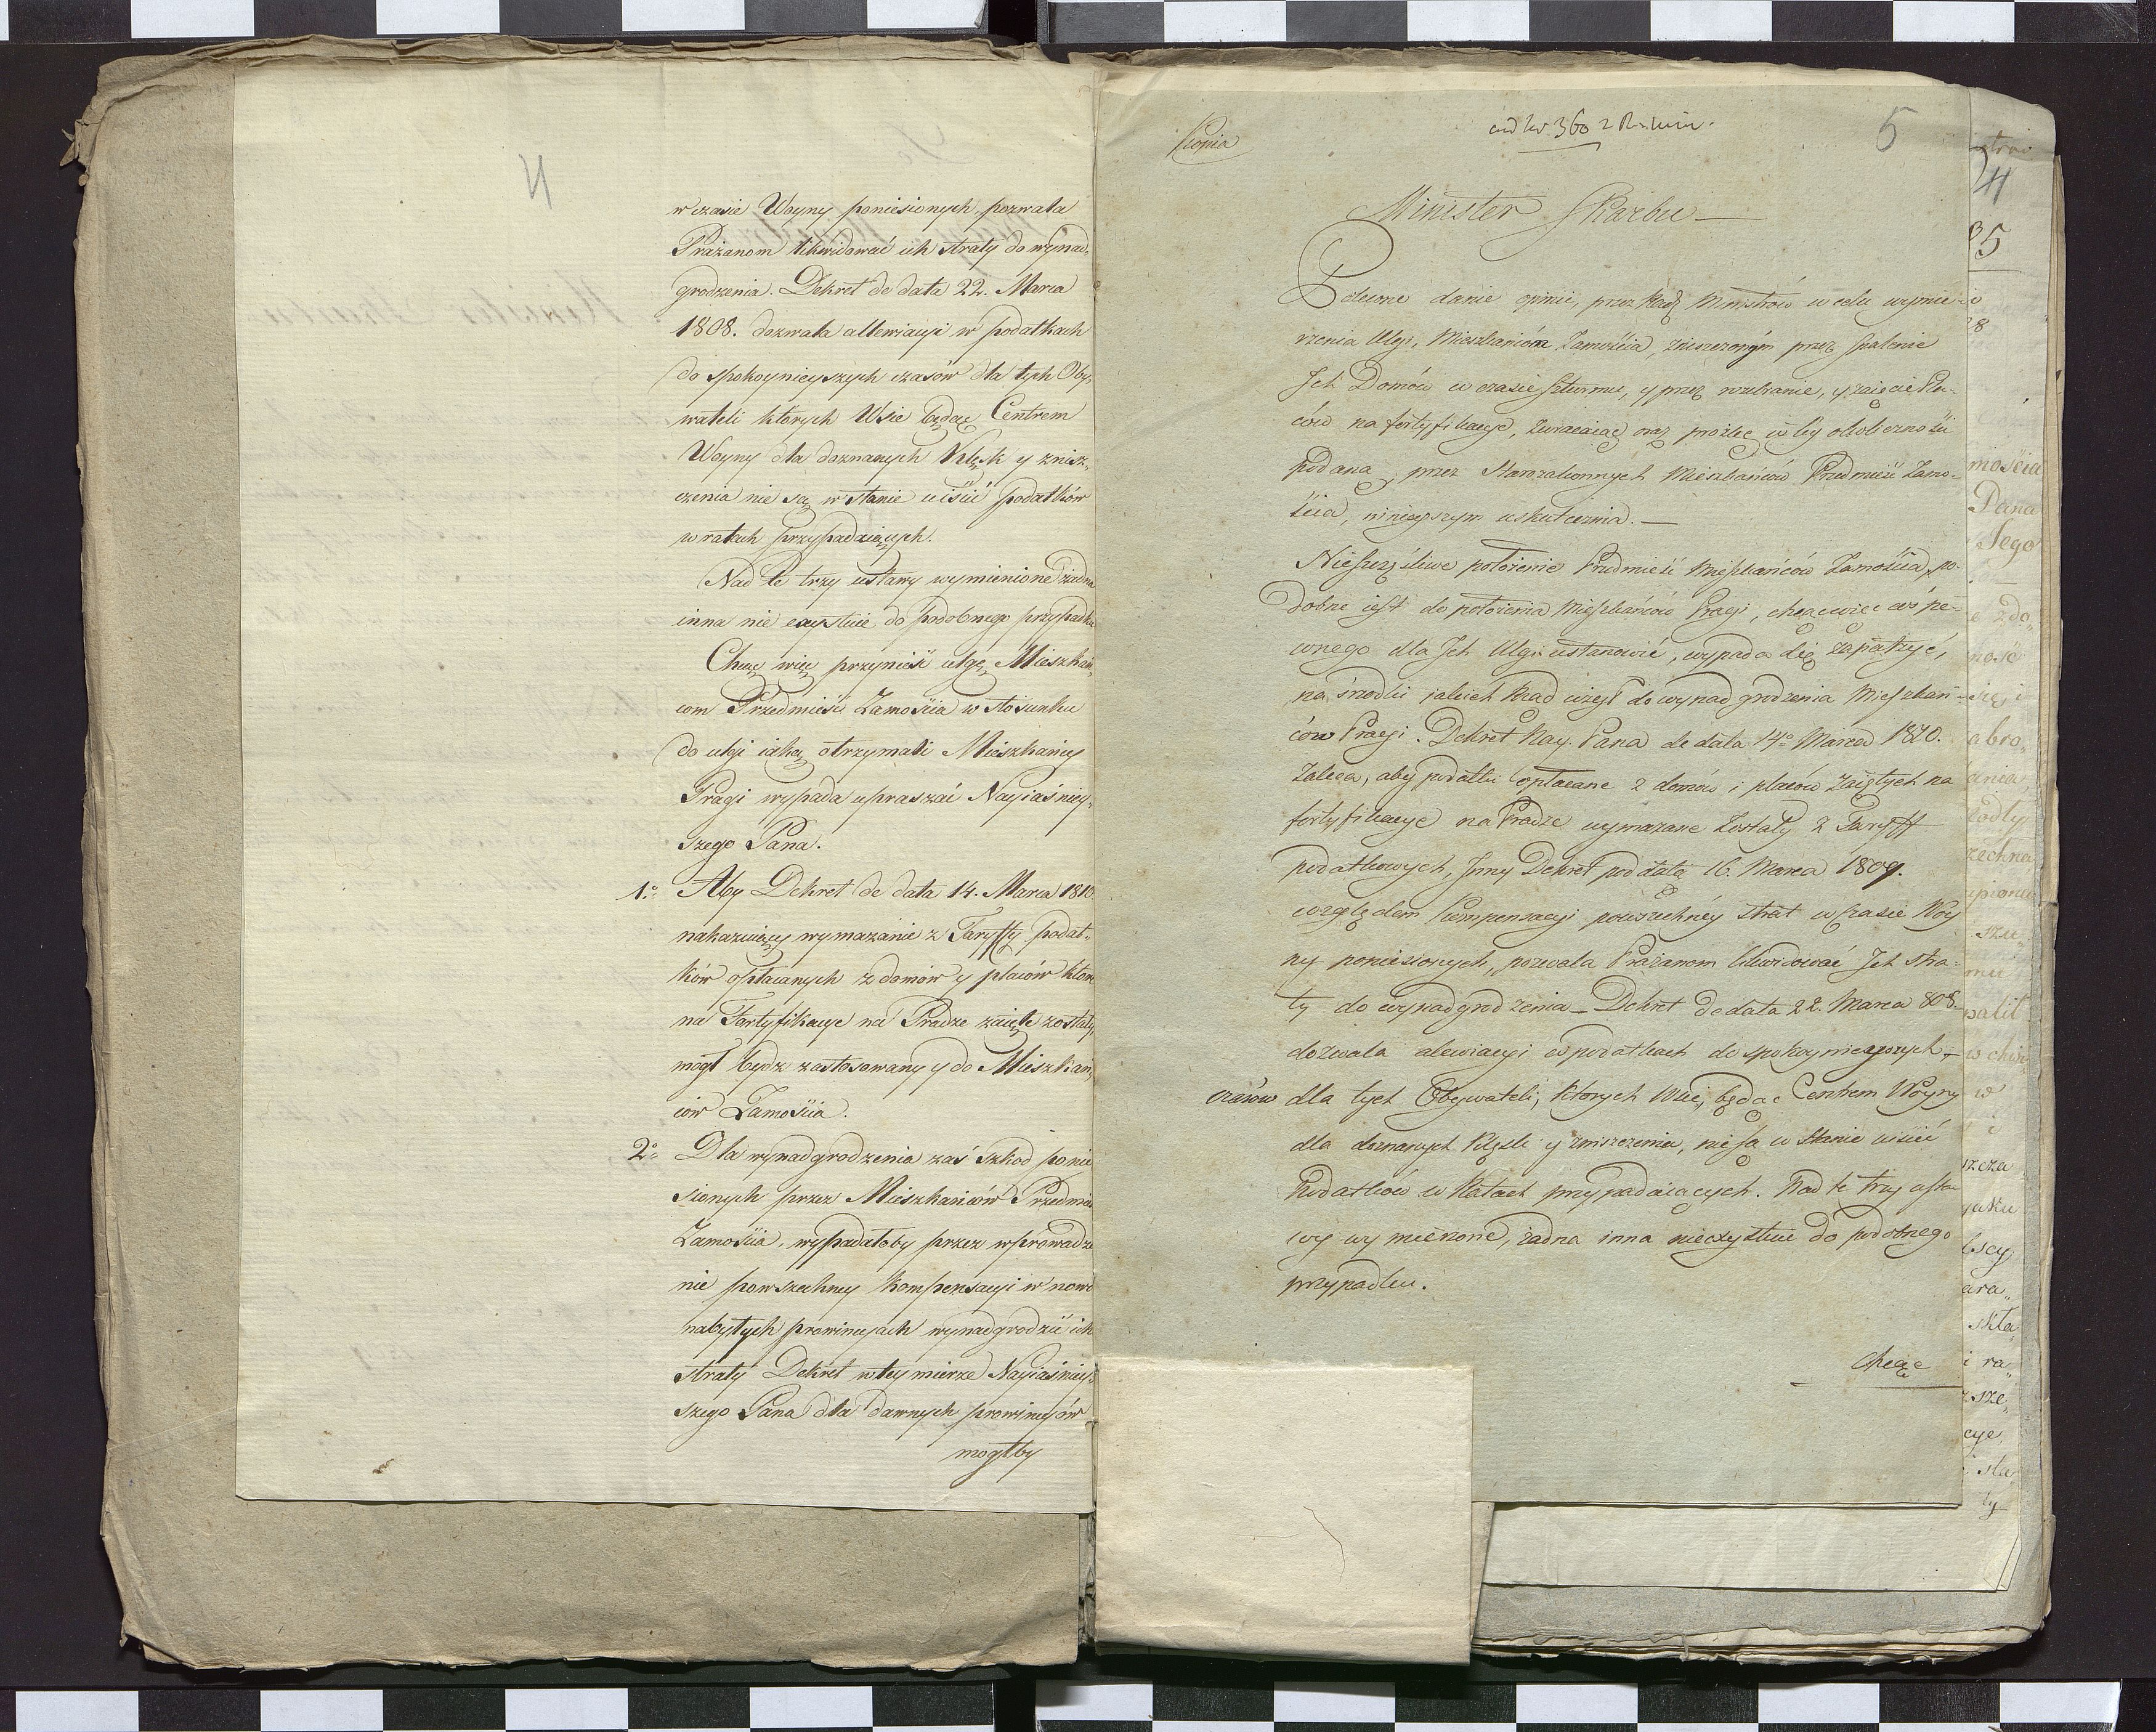 4
w czasie Woyny poniesionych, pozwala
Prażanom likwidować ich straty do wynad„
grodzenia. Dekret de data 22. Marca
1808. dozwala allewiacyi w podatkach
do spokoynieyszych czasów dla tych Oby„
wateli ktorych Wsie będąc Centrem
Woyny dla doznanych Klęsk y znisz„
czenia nie są w stanie uiścić podatków
w ratach przypadaiących.
Nad te trzy ustawy wymienione żadna
inna nie exystuie do podobnego przypadku
Chcąc więc przynieść ulgę Mieszkań„
com Przedmieśc Zamościa w stosunku
do ulgi iaką otrzymali Mieszkańcy
Pragi wypada upraszać Nayiaśniey„
szego Pana.
1o Aby Dekret de data 14. Marca 1810.
nakazuiący wymazanie z Taryffy podat„
ków opłacanych z domów y placów które
na Fortyfikacye na Pradze zaięte zostały,
mogł bydz zastosowany y do Mieszkań„
ców Zamościa.
2o Dla wynadgrodzenia zaś szkod ponie
sionych przez Mieszkańców Przedmieś
Zamościa, wypadałoby przez wprowadze
nie powszechney kompensacyi w nowo
nabytych prowincyach wynadgrodzić ich
straty Dekret w tey mierze Nayiaśniey„
szego Pana dla dawnych prowincyów
mogłby
Kopia
5
Minister Skarbu
Polecone danie opinii, przez Radę Ministrów w celu wymie-
rzenia Ulgi, Mieszkańców Zamościa, zniszczonym przez spalenie
Ich Domów w czasie szturmu, y przez rozebranie, y zaięcie Pla-
ców na fortyfikacye, zwracaiąc oraz prozbę w tey okoliczności
podaną, przez Starozakonnych Mieszkańców Przedmieść Zamo-
ścia, ninieyszym uskutecznia.—
Nieszczęśliwe położenie Przedmieść Mieszkańców Zamościa, po-
dobne iest do położenia Mieszkańców Pragi, chcąc więc coś pe-
wnego dla Ich Ulgi ustanowić, wypada się zapatrzyć,
na środki iakich Rząd użył do wynadgrodzenia Mieszkań-
ców Pragi. Dekret Nay. Pana de data 14o Marca 1810.
zaleca, aby podatki opłacane z domów i placów zaiętych na
fortyfikacye na Pradze wymazane zostały z Taryff
podatkowych, Inny Dekret pod datą 16. Marca 1809.
względem Kompensacyi powszechnéy strat w czasie Woy
ny poniesionych, pozwala Prażanom likwidować Ich stra-
ty do wynadgrodzenia — Dekret de data 22. Marca 808.
dozwala alewiacyi w podatkach do spokoynieyszych —
czasów dla tych Obywateli, ktorych Wsie, będąc Centrem Woyny
dla doznanych Klęsk y zniszczenia, nie są w stanie uiścić
Podatków w Ratach przypadaiących. Nad te trzy usta
wy wymienione, żadna inna nieexystuie do podobnego
przypadku.
Chcąc